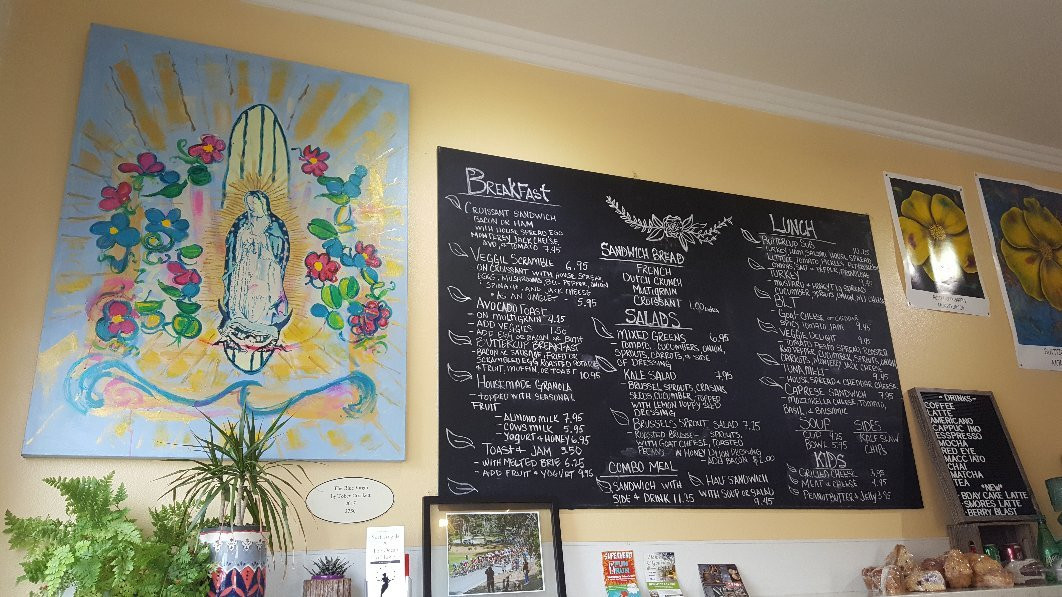 BREAKFAST
CROISSANT SANDWICH
BACON OR HAM
WITH HOUSE SPREAD EGG
MONTEREY JACK CHEESE
AND TOMATO 7.45
VEGGIE SCRAMBLE 6.95
ON CROISSANT WITH HOUSE SPREAD
EGGS, MUSHROOMS, BELL PEPPER, ONION
SPINACH AND JACK CHEESE
AS AN OMLET 5.95
AVOCADO TOAST
ON MULTIGRAIN 4.15
- ADD VEGGIES 1.50
- ADD EGG OR BACON OR BOTH
BUTTERCUP BREAKFAST
- BACON OR SAUSAGE, FRIED OR
SCRAMBLED EGG, ROASTED POTATOES
& FRUIT, MUFFIN, OR TOAST 10.95
HOUSEMADE GRANOLA
- TOPPED WITH SEASONAL
FRUIT
- ALMOND MILK 7.95
- COWS MILK 5.95
YOGURT & HONEY 6.95
TOAST & JAM 3.50
- WITH MELTED BRIE 6.25
- ADD FRUIT & YOGURT 9.95
SANDWICH BREAD
FRENCH
DUTCH CRUNCH
MULTIGRAIN
CROISSANT 1.00
SALADS
MIXED GREENS 6.95
- TOMATO, CUCUMBERS, ONION,
SPROUTS, CARROTS, & SIDE
OF DRESSING
KALE SALAD 7.95
- BRUSSEL SPROUTS, CRAISINS,
SEEDS, CUCUMBER, TOPPED
WITH LEMON POPPY SEED
DRESSING
BRUSSELS SPROUT SALAD 7.25
- ROASTED BRUSSEL SPROUTS,
WITH GOAT CHEESE, TOASTED
PECANS IN HONEY DIJON DRESSING
- ADD BACON $2.00
COMBO MEAL
SANDWICH WITH
SIDE & DRINK 11.25
HALF SANDWICH
WITH SOUP OR SALAD
9.45
LUNCH
BUTTERCUP SUB
TURKEY, HAM, SALAMI, HOUSE SPREAD
TURKEY
BLT
GOAT CHEESE OR CHEDDAR
SPICY TOMATO JAM 9.45
VEGGIE DELIGHT 9.45
CARROTS, MONTEREY JACK CHEESE
TUNA MELT 9.45
- HOUSE SPREAD & CHEDDAR CHEESE
CAPRESE SANDWICH 7.95
- MOZZARELLA CHEESE, TOMATO,
BASIL, & BALSAMIC
SOUP
CUP 4.25
BOWL 5.75
SIDES
KOLE SLAW
CHIPS
KIDS
GRILLED CHEESE 3.95
MEAT & CHEESE 4.95
PEANUT BUTTER & JELLY 3.95
-DRINKS-
COFFEE
LATTE
AMERICANO
CAPPUCINO
ESSPRESSO
MOCHA
RED EYE
MACCIATO
CHAI
MATCHA
TEA
*NEW*
-BDAY CAKE LATTE
-SMORES LATTE
-BERRY BLAST